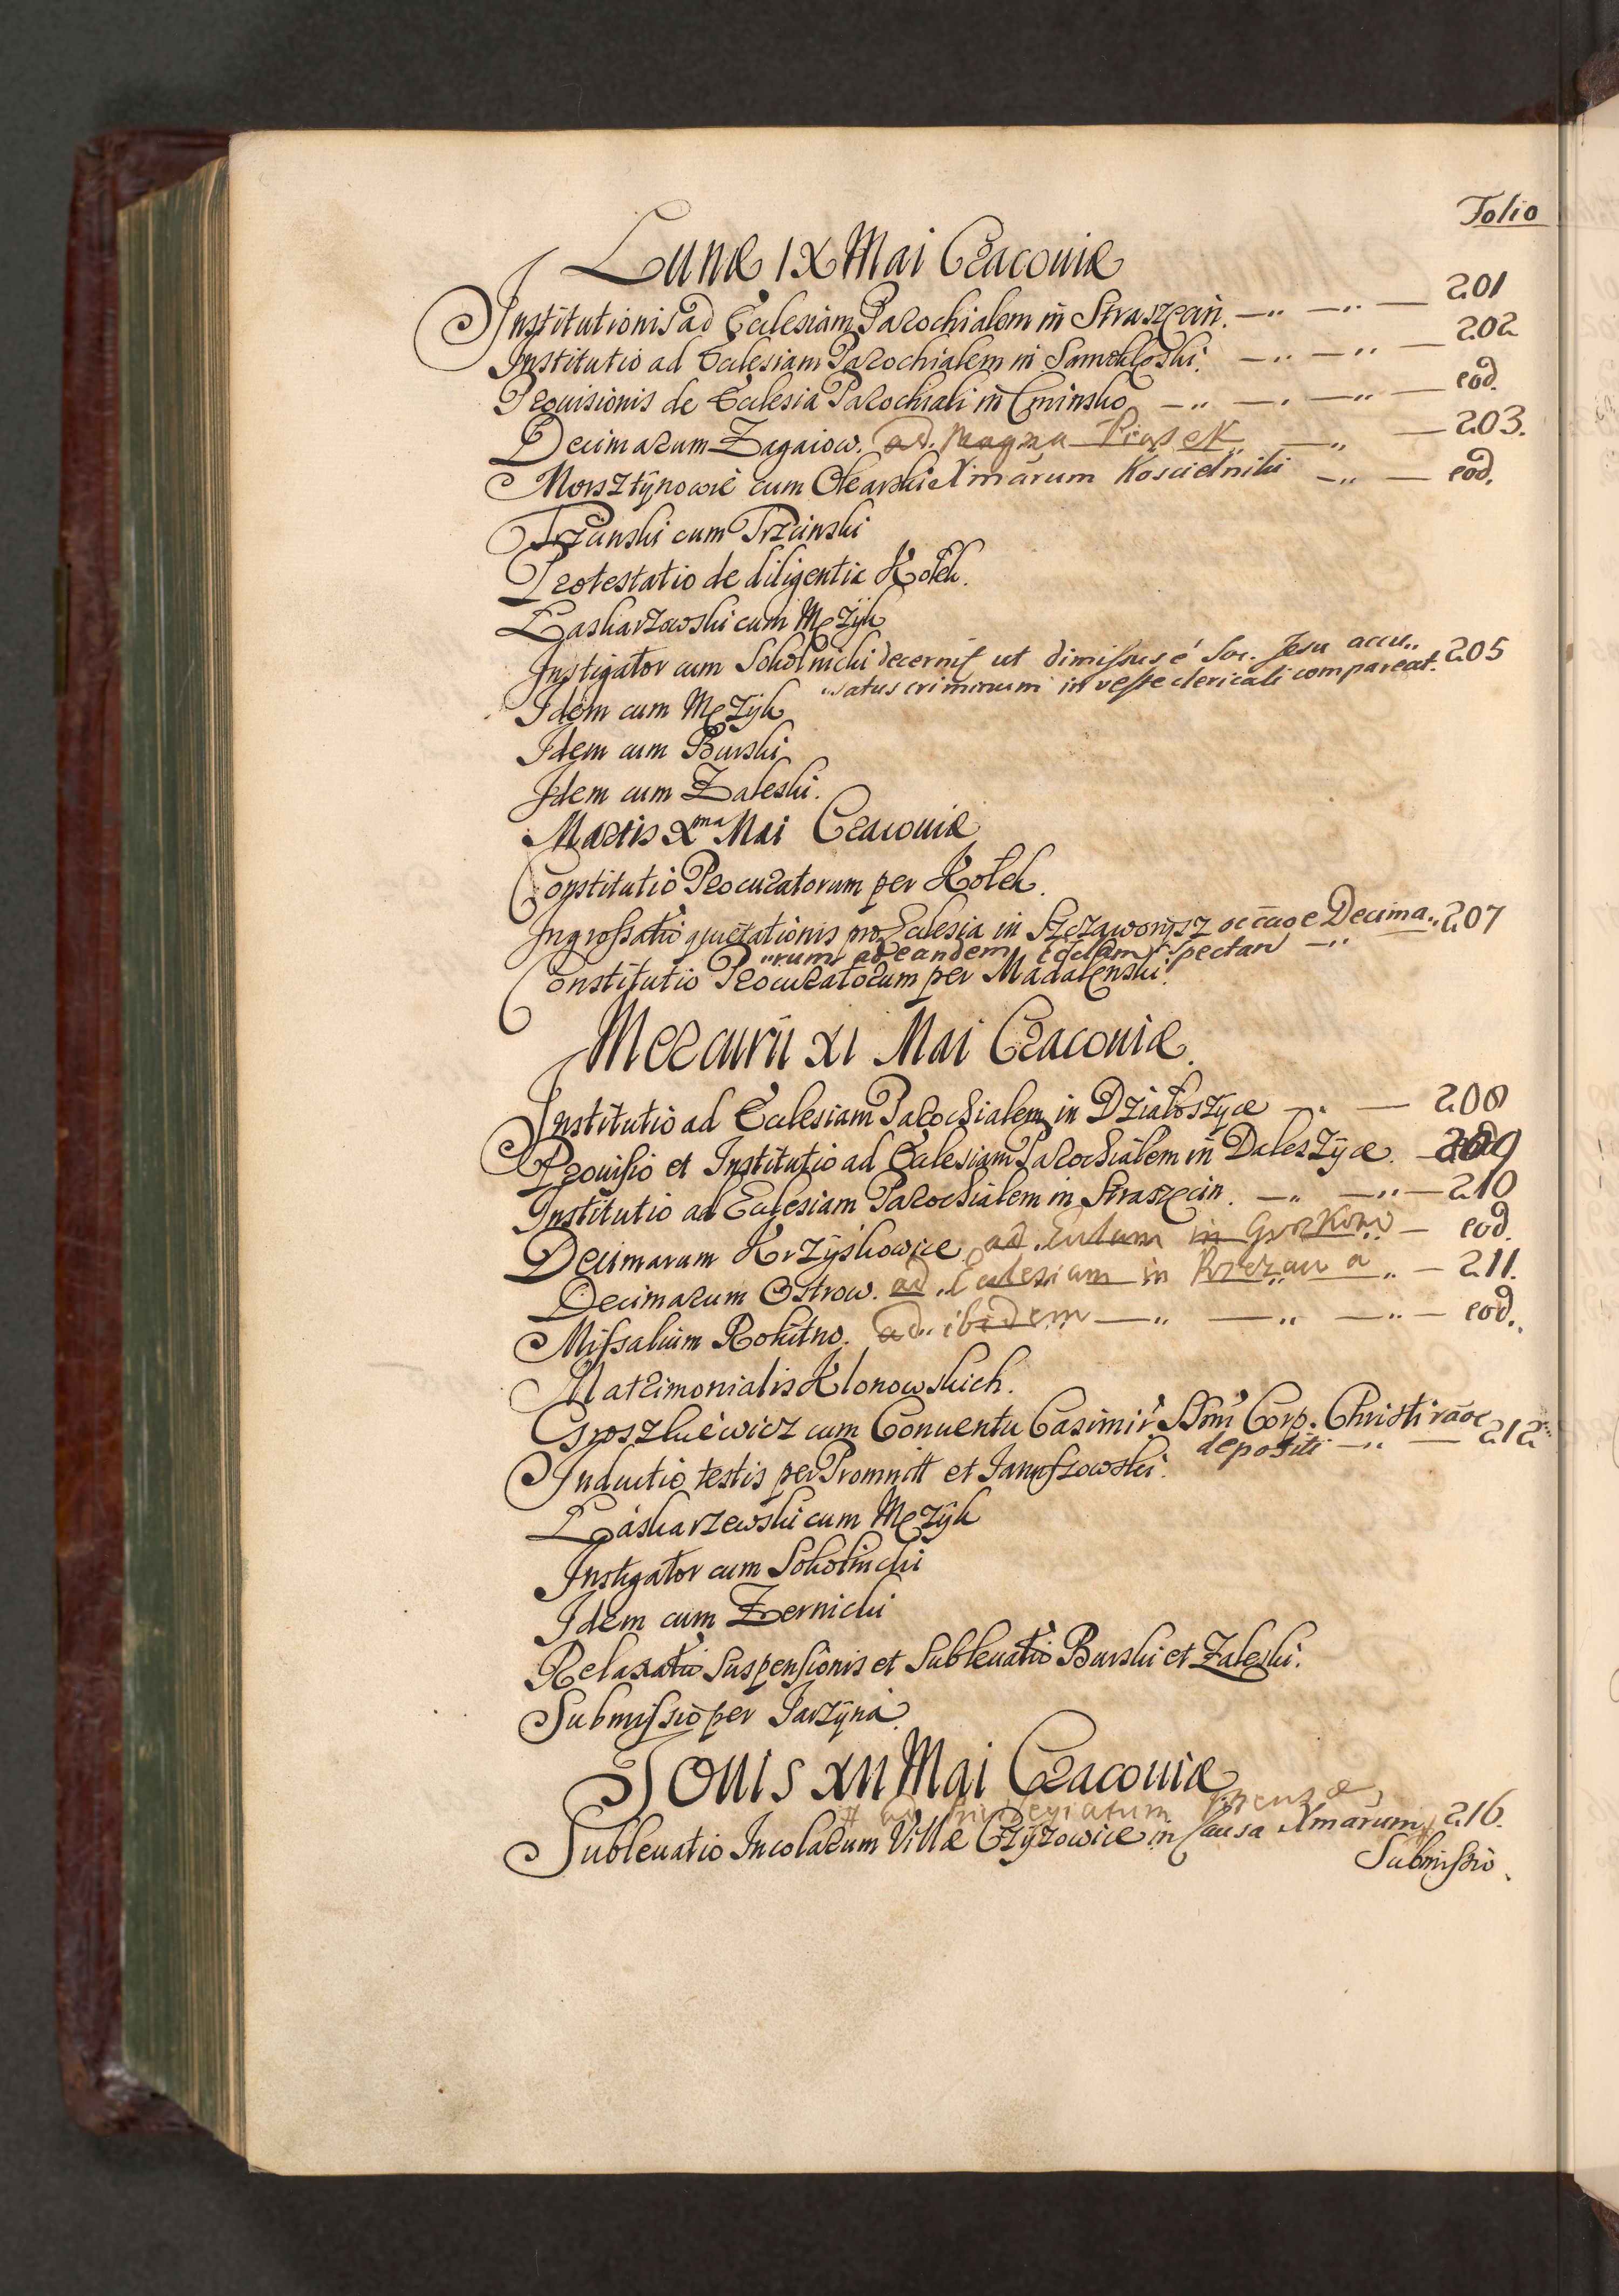 Folio
Lunæ IX Mai Cracoviæ
Institutionis ad Ecclesiam Parochialem in Straszęcin. 201
Institutio ad Ecclesiam Parochialem in 202
Prouisionis de Ecclesia Parochiali in Cminsko eod.
Decimarum Zagaiow. ad. Magna Piasek 203.
Morsztÿnowie cum Olearski Xmarum Koscielniki eod.
Trzanski cum Trzcinski
Protestatio de diligentia Kołek.
Łaskarzowski cum Męzÿk
Instigator cum Sokolnicki decernit ut dimissus é Soc. Jesu accu.. 205
..satus criminum in veste clericali compareat.
Idem cum Męzÿk
Idem cum Burski
Idem cum Zaleski.
Martis Xma Mai Cracouiæ
Constitutio Procuratorum per Kołek.
Ingrossatio quietationis pro Ecclesia in occãoe Decima.. 207
..rum ad eandem spectan
Constitutio Procuratorum per Madalenski.
Mercurii XI Mai Cracouiæ.
Institutio ad Ecclesiam Parochialem in Działoszÿce 208
Prouisio et Institutio ad Ecclesiam Parochialem in Daleszÿce. 209
Institutio ad Ecclesiam Parochialem in Straszęcin. 210
Decimarum Krzÿskowice ad in eod.
Decimarum Ostrow. ad Ecclesiam in 211.
Missalium Rokitno. ad ibidem eod.
Matrimonialis Klonowskich.
Groszkiewicz cum Conuentu Casimir: SSmi Corp. Christi rãoe 212
depositi
Inductio testis per Promnitt et
Łaskarzewski cum Męzÿk
Instigator cum Sokolnicki
Idem cum Zernicki
Relaxatio suspensionis et Subleuatio Burski et Zaleski.
Submissio per Jarzÿna.
Jouis XII Mai Cracouiæ
Subleuatio Incolarum Villæ Czÿzowice in causa Xmarum 216.
Submissio